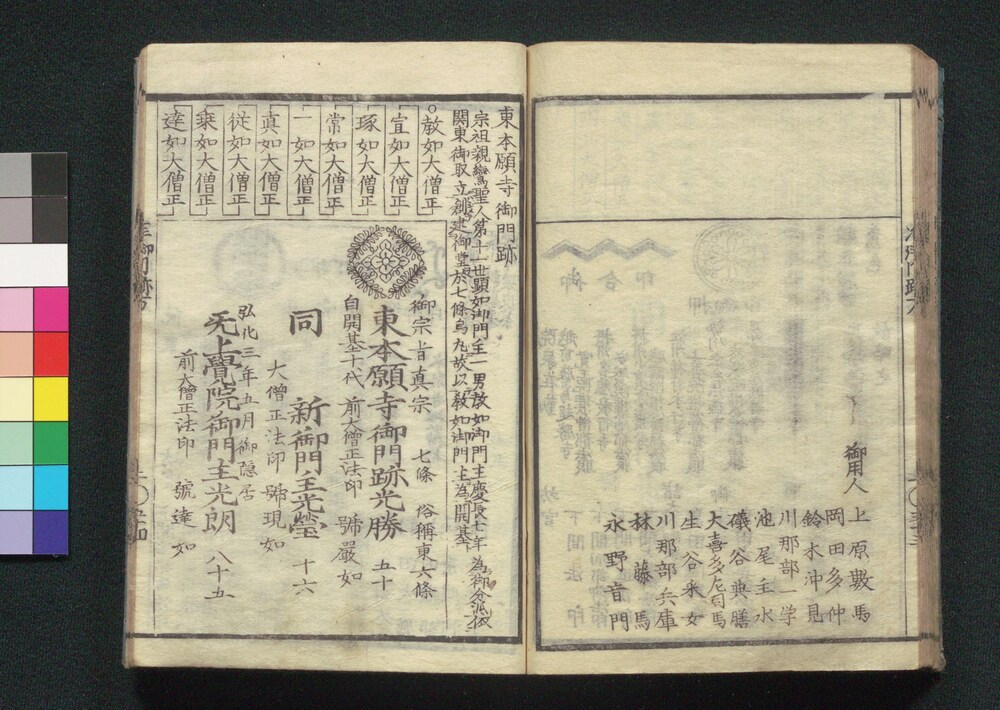 御用人
上原数馬
岡田多仲
鈴木沖見
川那部一学
池尾主水
磯谷典膳
大喜多左司馬
生谷采女
川那部兵庫
林藤馬
永野音門
東本願寺御門跡
宗祖親鸞聖人第十一世顕如御門主一男教如御門主慶長七年為御分派
関東御取立創建御堂於七條烏丸故以教如御門主為開基
教如大僧正
宣如大僧正
琢如大僧正
常如大僧正
一如大僧正
真如大僧正
従如大僧正
乗如大僧正
達如大僧正
御宗旨真宗 七條 俗稱東六條
東本願寺御門跡光勝 五十
自開基十代 前大僧正法印 號嚴如
同 新御門主光瑩 十六
大僧正法印 號現如
弘化三年五月御隠居
无上覺院御門主光朗 八十五
前大僧正法印 號達如